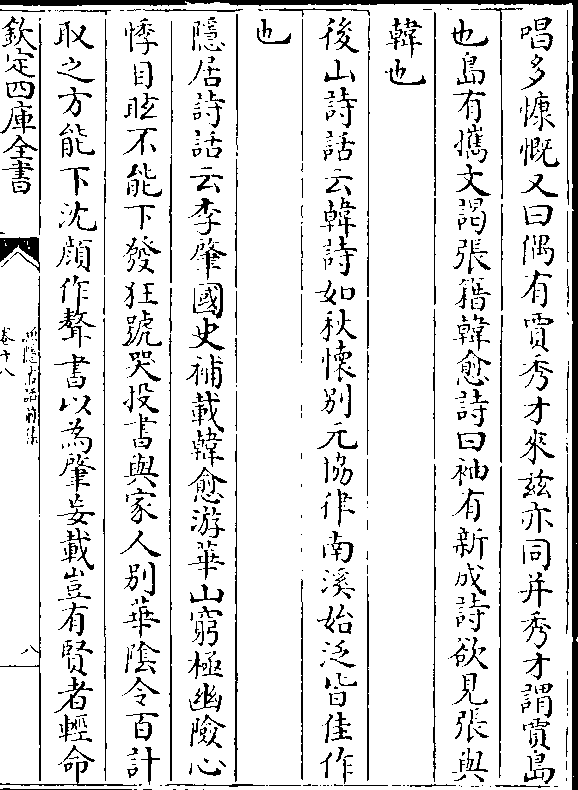 唱多慷慨又曰偶有賈秀才來兹亦同并秀才謂賈島
也島有攜文謁張籍韓愈詩曰袖有新成詩欲見張與
韓也
後山詩話云韓詩如秋懷别元協律南溪始泛皆佳作
也
隱居詩話云李肇國史補載韓愈游華山窮極幽險心
悸目眩不能下發狂號哭投書與家人别華陰令百計
取之方能下沈顔作聲書以為肇妄載豈有賢者輕命
欽定四庫全書
卷十八
八